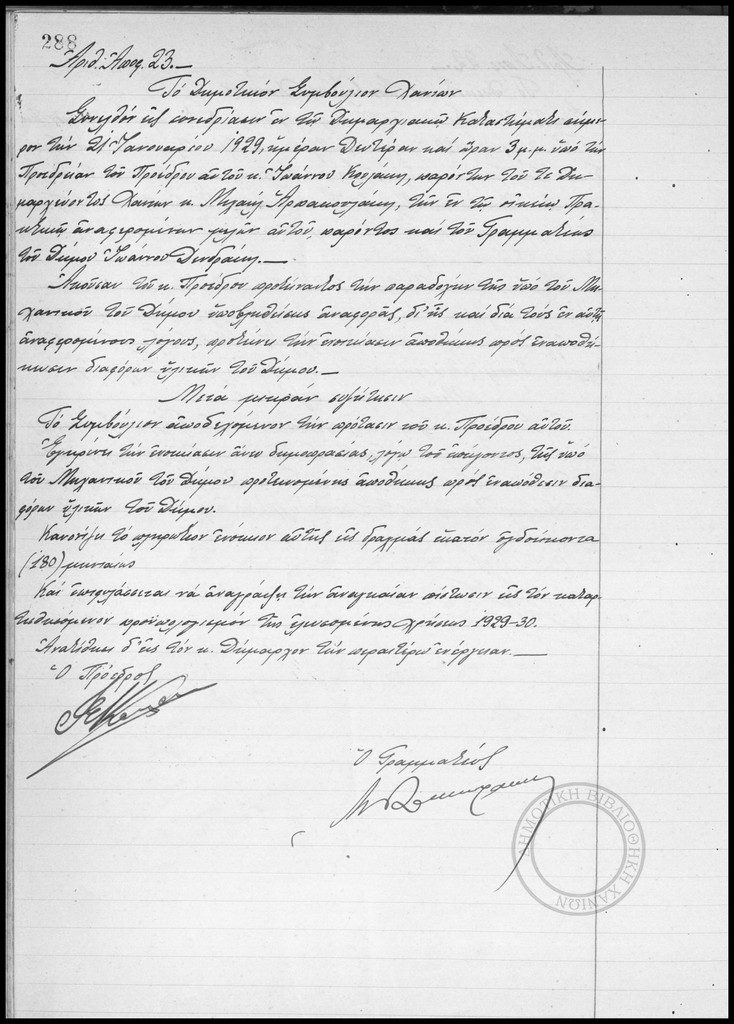 288
Ἀριθ. Ἀποφ. 23.—
Τό Δημοτικόν Συμβούλιον Χανίων
Συνελθόν εἰς συνεδρίασιν ἐν τῷ Δημαρχιακῷ Καταστήματι σήμε-
ρον τήν 21 Ἰανουαρίου 1929, ἡμέραν Δευτέραν καί ὥραν 3 μ.μ. ὑπό τήν
Προεδρείαν τοῦ Προέδρου αὐτοῦ κ. Ἰωάννου παρόντων τοῦ τε Δη-
μαρχεύοντος Χανίων κ. Μιχαήλ τῶν ἐν τῷ οἰκείῳ Πρα-
κτικῷ ἀναφερομένων μελῶν αὐτοῦ, παρόντος καί τοῦ Γραμματέως
τοῦ Δήμου Ἰωάννου Δενδράκη.—
Ἀκοῦσαν τοῦ κ. Προέδρου προτείναντος τήν παραδοχήν τῆς ὑπό τοῦ Μη-
χανικοῦ τοῦ Δήμου ὑποβληθείσης ἀναφορᾶς, δι' ἧς καί διά τούς ἐν αὐτῇ
ἀναφερομένους λόγους, προτείνει τήν ἐνοικίασιν ἀποθήκης πρός ἐναποθή-
κευσιν διαφόρων ὑλικῶν τοῦ Δήμου.—
Μετά μικράν συζήτησιν
Τό Συμβούλιον ἀποδεχόμενον τήν πρότασιν τοῦ κ. Προέδρου αὐτοῦ.
Ἐγκρίνει τήν ἐνοικίασιν ἄνευ δημοπρασίας, λόγῳ τοῦ ἐπείγοντος, τῆς ὑπό
τοῦ Μηχανικοῦ τοῦ Δήμου προτεινομένης ἀποθήκης πρός ἐναπόθεσιν δια-
φόρων ὑλικῶν τοῦ Δήμου.
Κανονίζει τό πληρωτέον ἐνοίκιον αὐτῆς εἰς δραχμάς ἑκατόν ὀγδοήκοντα
(180) μηνιαίως
Καί ἐπιφυλάσσεται νά ἀναγράψῃ τήν ἀναγκαίαν πίστωσιν εἰς τόν καταρ-
τισθησόμενον προϋπολογισμόν τῆς ἐλευσομένης χρήσεως 1929-30.
Ἀναθέτει δ' εἰς τόν κ. Δήμαρχον τήν περαιτέρω ἐνέργειαν.—
Ὁ Πρόεδρος
Ὁ Γραμματεύς
ΔΗΜΟΤΙΚΗ ΒΙΒΛΙΟΘΗΚΗ ΧΑΝΙΩΝ